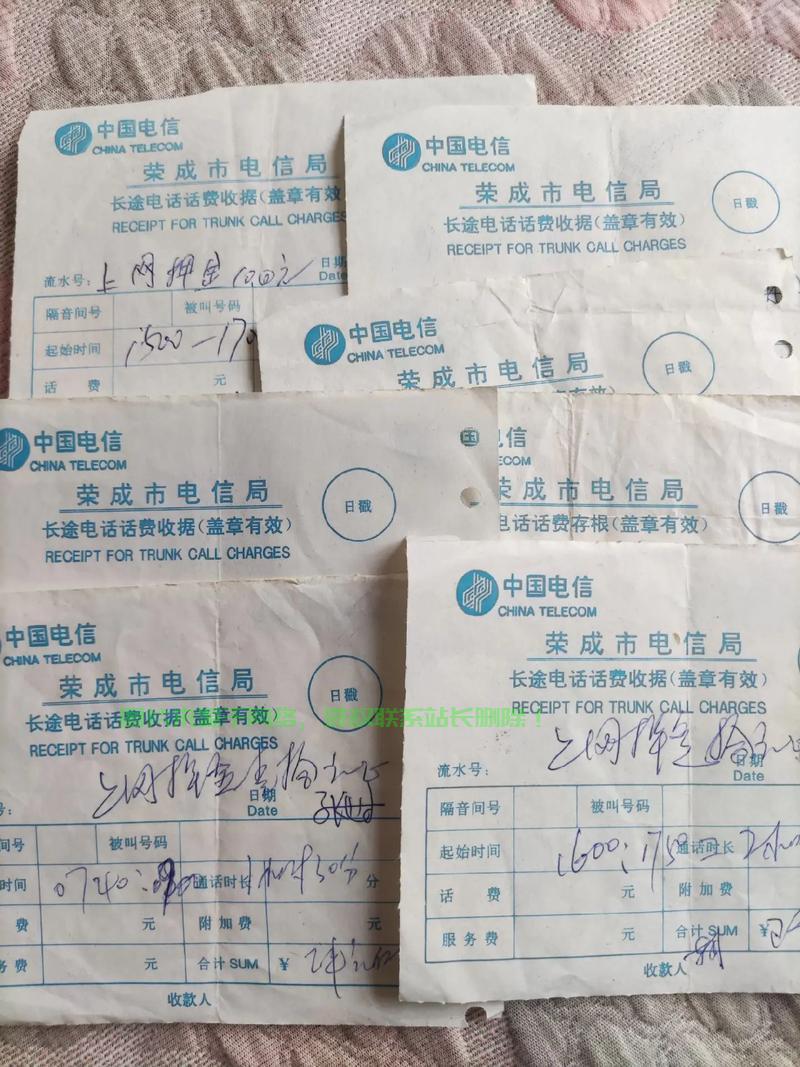 中国电信
CHINA TELECOM
荣成市电信局
长途电话话费收据(盖章有效)
RECEIPT FOR TRUNK CALL CHARGES
流水号: 上网押金 10.00元
日期
Date
隔音间号 被叫号码
起始时间 1500—170
话 费 元
中国电信
CHINA TELECOM
荣成市电信局
日戳
长途电话话费收据(盖章有效)
RECEIPT FOR TRUNK CALL CHARGES
中国电信
CHINA TELECOM
荣成市电信局
日戳
中国电信
CHINA TELECOM
荣成市电信局
日戳
长途电话话费收据(盖章有效)
RECEIPT FOR TRUNK CALL CHARGES
信
COM
荣成市电信局
日戳
电话话费存根(盖章有效)
中国电信
CHINA TELECOM
荣成市电信局
日戳
长途电话话费收据(盖章有效)
RECEIPT FOR TRUNK CALL CHARGES
上网押金壹拾元正
号:
日期
Date
间号 被叫号码
时间 0740: 通话时长 1小时30分 分
费 元 附加费 元
务费 元 合计SUM ¥
收款人
中国电信
CHINA TELECOM
荣成市电信局
长途电话话费收据(盖章有效)
RECEIPT FOR TRUNK CALL CHARGES
上网押金拾元正
流水号:
日期
Date
隔音间号 被叫号码
起始时间 1600:1750 通话时长
话 费 元 附加费
服务费 元 合计SUM ¥
收款人
联系站长删除!